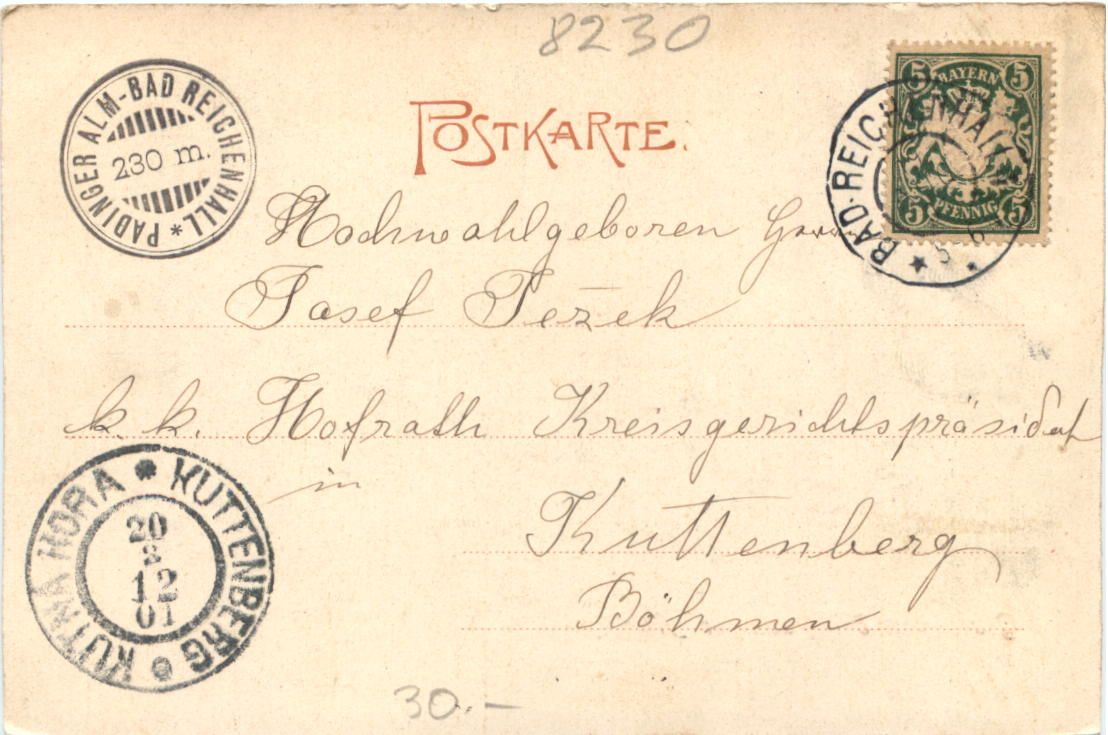 8230
PADINGER ALM-BAD REICHENHALL *
230 m.
POSTKARTE.
5 BAYERN 5
5 PFENNIG 5
BAD·REICHENHALL
5 6
Hochwohlgeboren Herrn
Josef Ježek
k. k. Hofrath Kreisgerichtspräsident
in
Kuttenberg
Böhmen
KUTNÁ HORA * KUTTENBERG
20
3
12
01
30.-